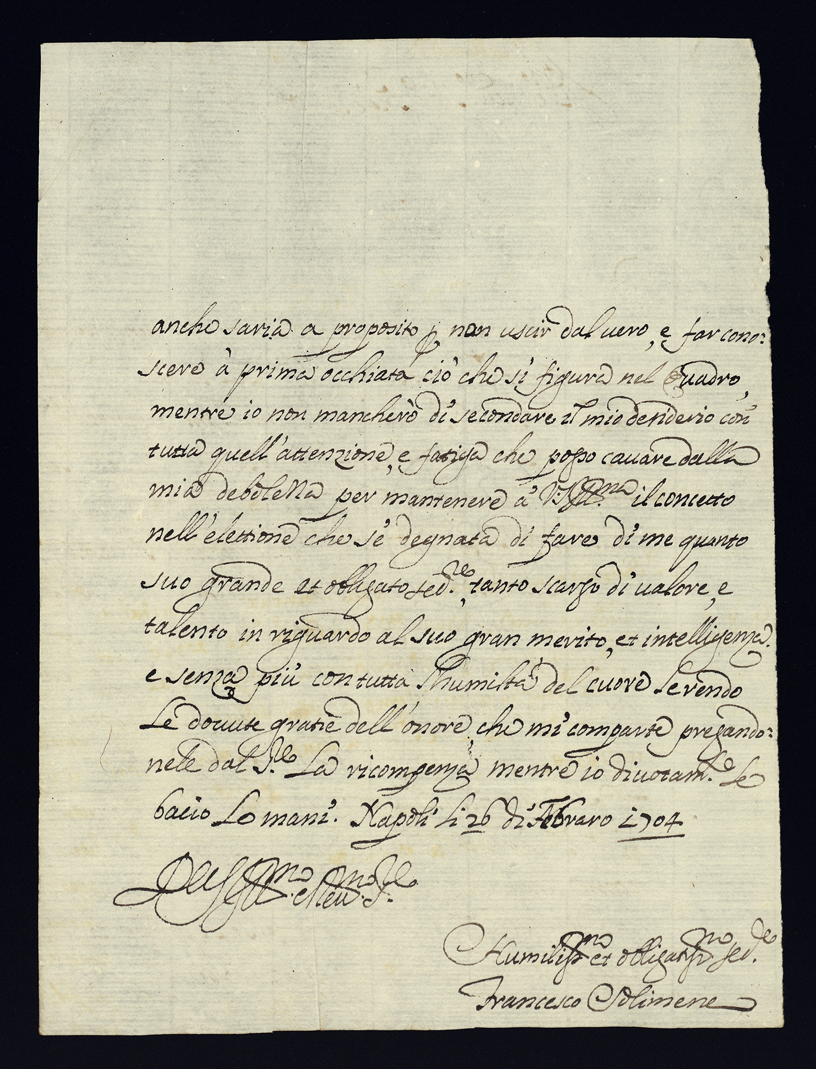 anche saria a proposito p non uscir dal vero, e far cono:
scere à prima occhiata ciò che si figura nel quadro,
mentre io non mancherò di secondare il mio desiderio con
tutta quell'attenzione, e fatiga che posso cavare dalla
mia debolezza per mantenere à V.S. Ill.ma il concetto
nell'elettione che s'è degnata di fare di me quanto
suo grande et obligato se.re, tanto scarso di valore, e
talento in riguardo al suo gran merito, et intelligenza.
e senza più con tutta l'humiltà del cuore le rendo
le dovute gratie dell'onore, che mi comparte pregando:
nele dal S.re la ricompenza mentre io divotam.te le
bacio le mani. Napoli li 26 di Febraro 1704
Di V.S. Ill.ma e Rev.ma
Humiliss.mo et obligatiss.mo se.re
Francesco Solimene